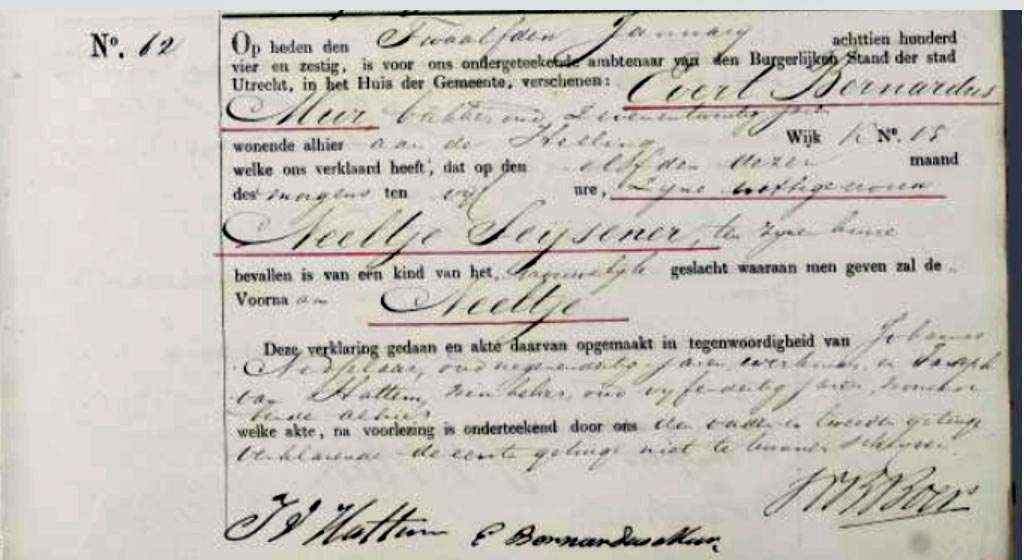 No. 62
Op heden den Twaalfden January achttien honderd
vier en zestig, is voor ons ondergeteekende ambtenaar van den Burgerlijken Stand der stad
Utrecht, in het Huis der Gemeente, verschenen: Evert Bernardus
Mur, bakker oud Zevenentwintig jaren
wonende alhier aan de Helling Wijk K No. 15
welke ons verklaard heeft, dat op den elfden dezer maand
des morgens ten vyf ure, Zyne wettige vrouw
Neeltje Seysener, ten zyne huize
bevallen is van een kind van het vrouwelyk geslacht waaraan men geven zal de
Voorna am Neeltje
Deze verklaring gedaan en akte daarvan opgemaakt in tegenwoordigheid van Johannes
oud negenendertig jaren, werkman, en Joseph
van Hattum, oud vyfendertig jaren, wonen
de alhier
welke akte, na voorlezing is onderteekend door ons den vader en tweeden getuige
verklarende de eerste getuige niet te kunnen schryven.
J V Hattum E Bernardus Mur.